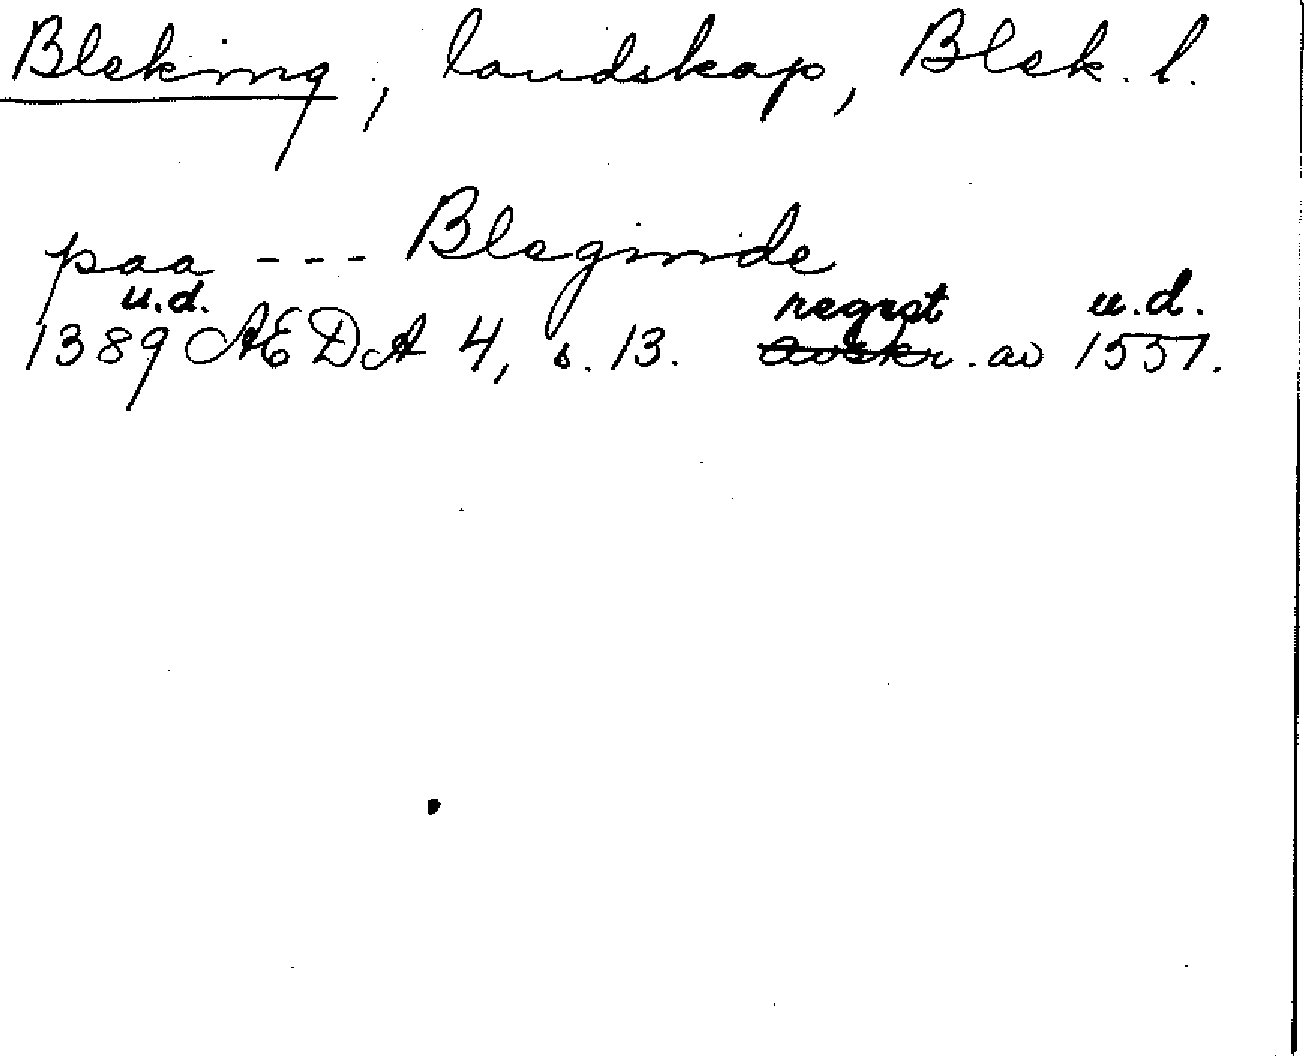 Bleking, landskap, Blek. l.
paa --- Bleginde
u.d. regest u.d.
1389 AEDA 4, s. 13. avskr. av 1551.